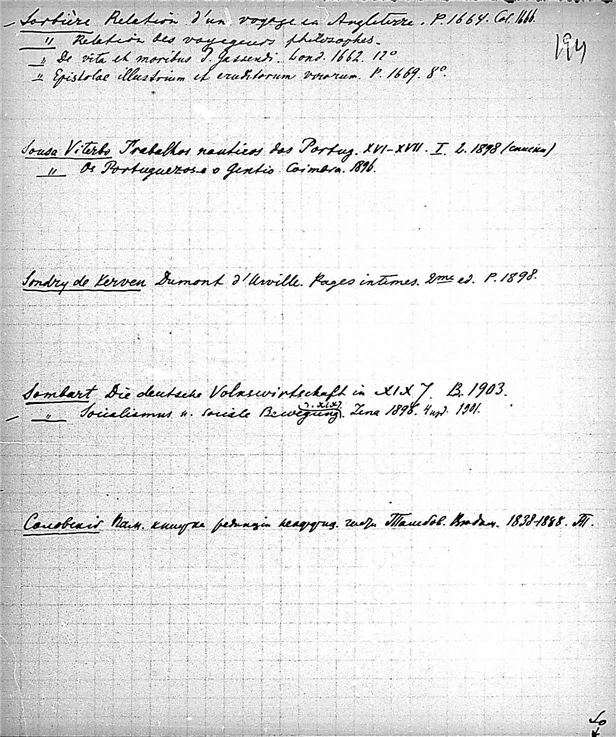 Sorbière Relation d'un voyage en Angleterre. P. 1664. Col. 1666.
194
" Relation des voyageurs philosophes.
" De vita et moribus P. Gassendi. Lond. 1662. 12°
" Epistolae illustrium et eruditorum virorum. P. 1669. 8°.
Sousa Viterbo Trabalhos nauticos dos Portug. XVI-XVII. I. L. 1898 (списки)
" Os Portuguezes e o Gentio. Coimbra. 1896.
Sondry de Kerven Dumont d'Urville. Pages intimes. 2me ed. P. 1898.
Sombart Die deutsche Volkswirtschaft in XIX J. B. 1903.
" Socialismus u. sociale Bewegung. Jena 1898. 4 изд. 1901.
Пам. книжка 1838-1888. Т.
So